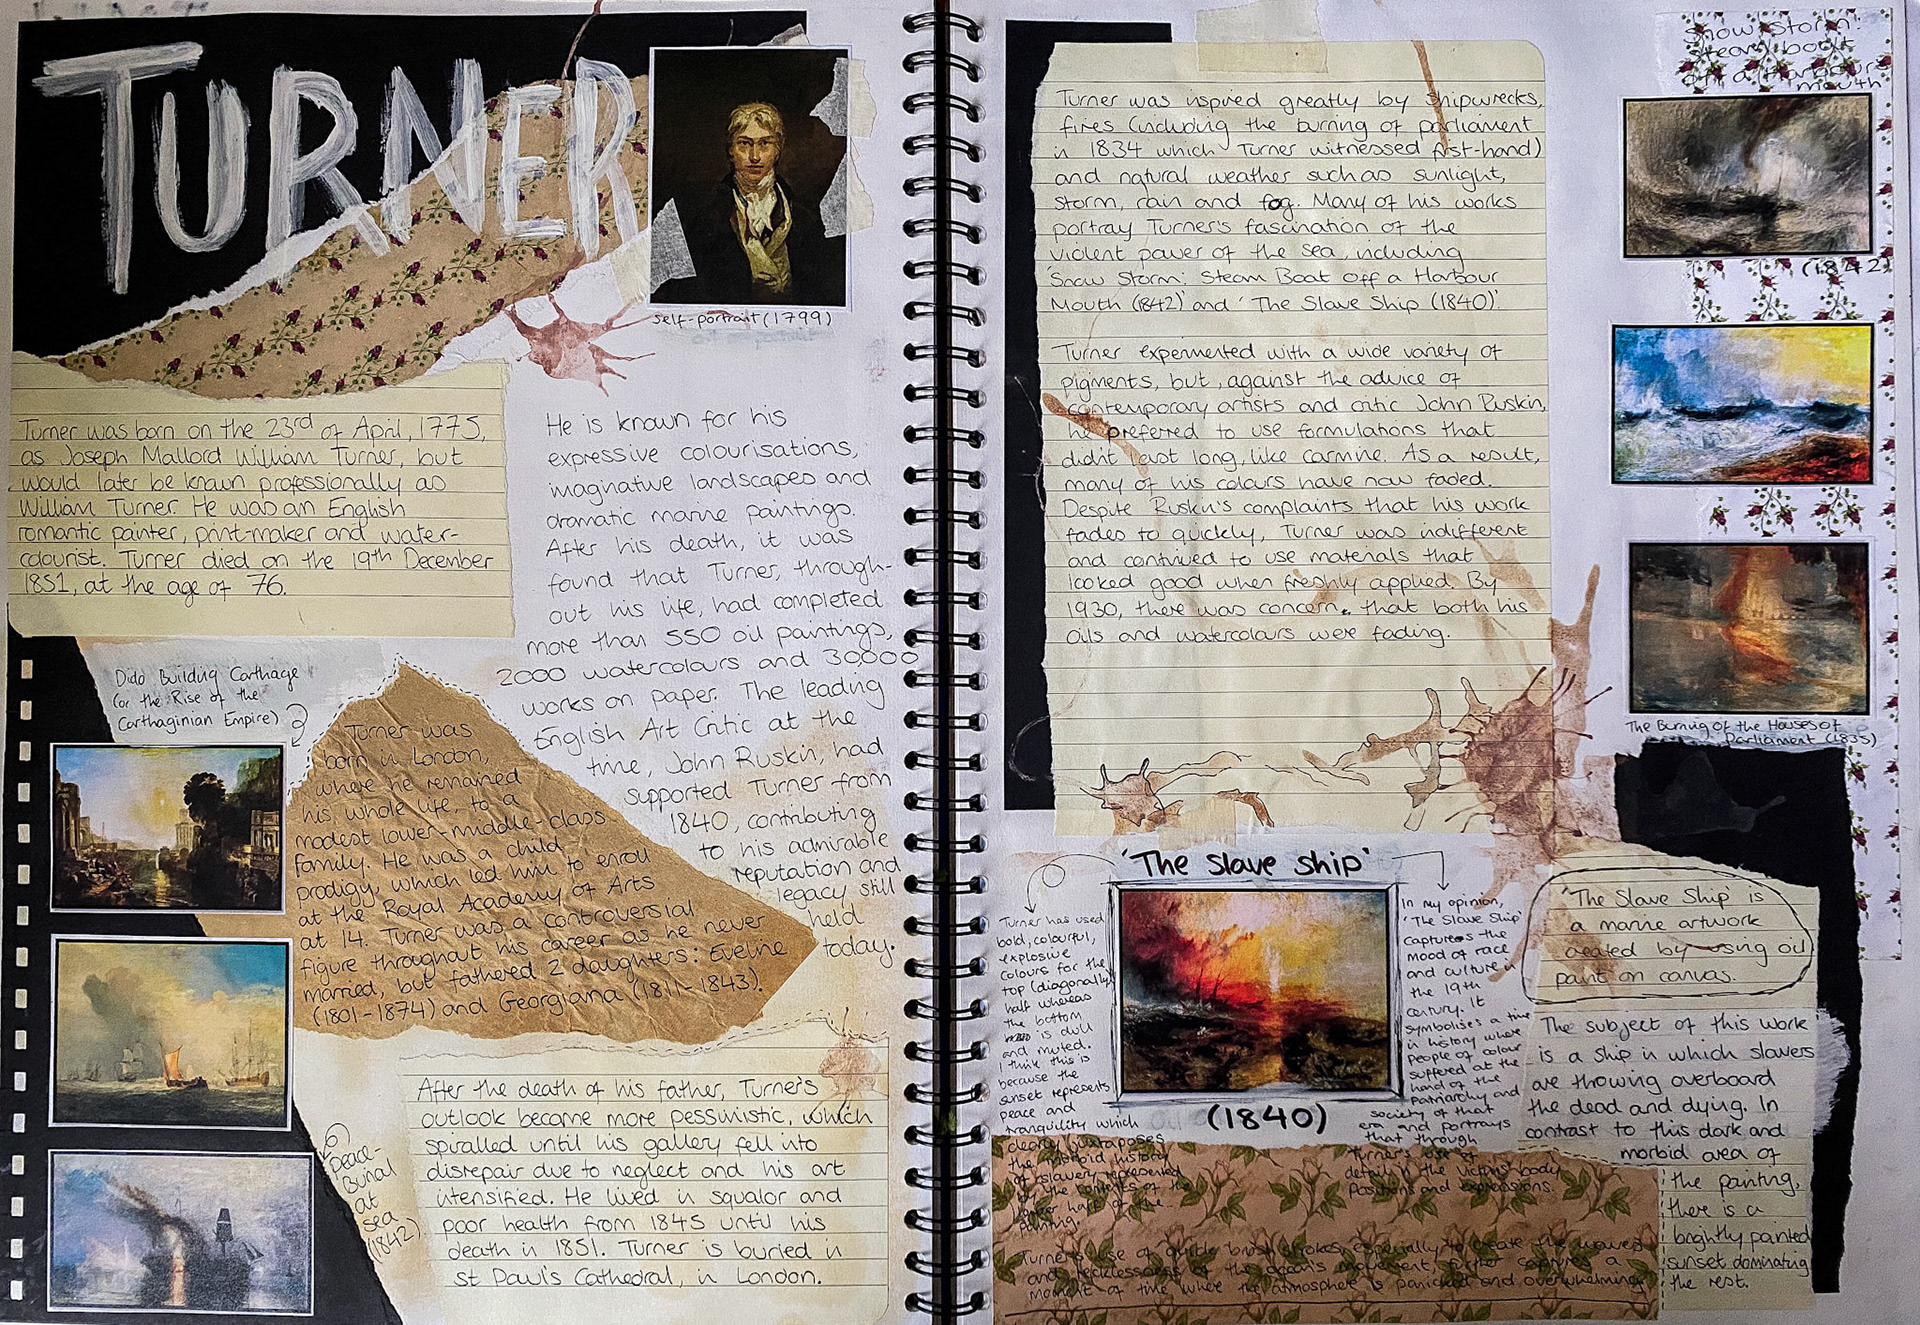 TURNER
self-portrait (1799)
Turner was born on the 23rd of April, 1775,
as Joseph Mallord William Turner, but
would later be known professionally as
William Turner. He was an English
romantic painter, print-maker and water-
colourist. Turner died on the 19th December
1851, at the age of 76.
He is known for his
expressive colourisations,
imaginative landscapes and
dramatic marine paintings.
After his death, it was
found that Turner, through-
out his life, had completed
more than 550 oil paintings,
2000 watercolours and 30,000
works on paper. The leading
English Art Critic at the
time, John Ruskin, had
supported Turner from
1840, contributing
to his admirable
reputation and
legacy still
held
today.
Dido Building Carthage
(or the Rise of the
Carthaginian Empire)
Turner was
born in London,
where he remained
his whole life, to a
modest lower-middle-class
family. He was a child
prodigy, which led him to enroll
at the Royal Academy of Arts
at 14. Turner was a controversial
figure throughout his career as he never
married, but fathered 2 daughters: Eveline
(1801-1874) and Georgiana (1811-1843).
peace-
Burial
at
sea
(1842)
After the death of his father, Turner's
outlook became more pessimistic, which
spiralled until his gallery fell into
disrepair due to neglect and his art
intensified. He lived in squalor and
poor health from 1845 until his
death in 1851. Turner is buried in
St Paul's Cathedral, in London.
Turner was inspired greatly by shipwrecks,
fires (including the burning of parliament
in 1834 which Turner witnessed first-hand)
and natural weather such as sunlight,
storm, rain and fog. Many of his works
portray Turner's fascination of the
violent power of the sea, including
'Snow Storm: Steam Boat off a Harbour
Mouth (1842)' and 'The Slave Ship (1840)'.
Turner experimented with a wide variety of
pigments, but, against the advice of
contemporary artists and critic John Ruskin,
he preferred to use formulations that
didn't last long, like carmine. As a result,
many of his colours have now faded.
Despite Ruskin's complaints that his work
fades to quickly, Turner was indifferent
and continued to use materials that
looked good when freshly applied. By
1930, there was concern that both his
oils and watercolours were fading.
Snow Storm:
steam boat
off a Harbour
mouth
(1842)
The Burning of the Houses of
Parliament (1835)
'The Slave Ship'
(1840)
Turner has used
bold, colourful,
explosive
colours for the
top (diagonally)
half whereas
the bottom
is dull
and muted.
I think this is
because the
sunset represents
peace and
tranquility which
clearly juxtaposes
the morbid history
of slavery represented
by the contents of the
lower half of the
painting.
In my opinion,
'The Slave Ship'
captures the
mood of race
and culture in
the 19th
century. It
symbolises a time
in history where
people of colour
suffered at the
hand of the
Patriarchy and
society of that
era and portrays
that through
Turner's use of
detail in the victims' body
positions and expressions.
Turner's use of quick brush strokes, especially to create the waves
and recklessness of the ocean's movement, further captures a
moment of time where the atmosphere is panicked and overwhelming.
'The Slave Ship' is
a marine artwork
created by using oil
paint on canvas.
The subject of this work
is a ship in which slavers
are throwing overboard
the dead and dying. In
contrast to this dark and
morbid area of
the painting,
there is a
brightly painted
sunset dominating
the rest.